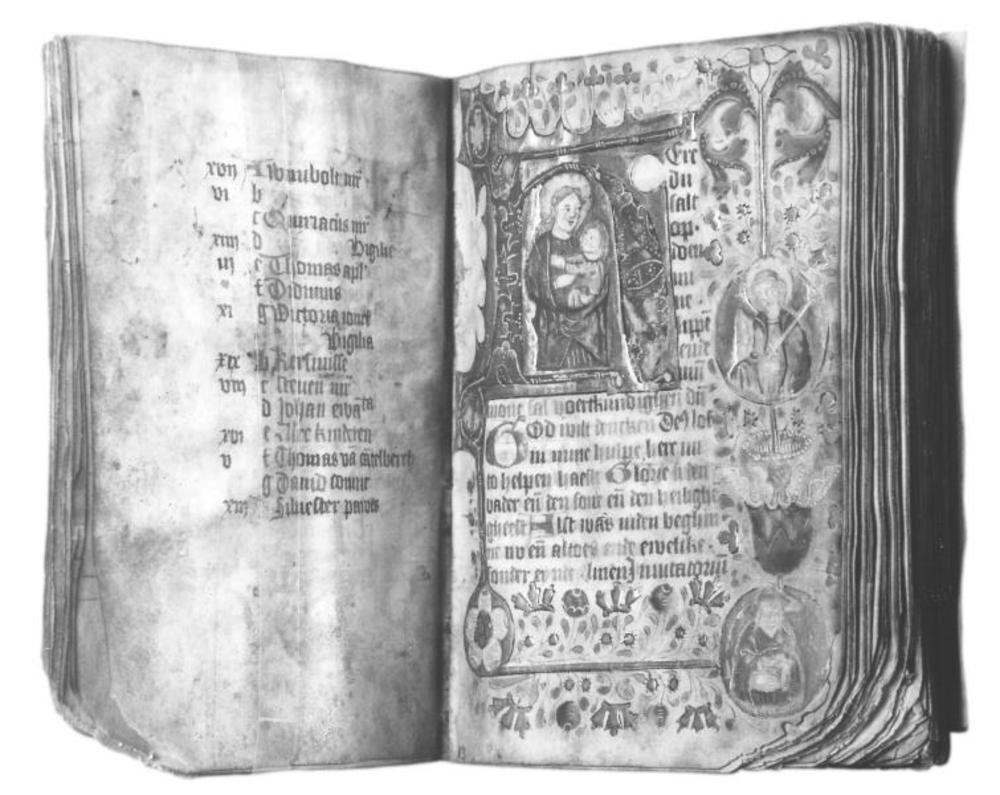 xvij Wnubolt mr̄
vi b
c Quiriacus mr̄
xiiij d Vigilie
iij e Thomas apl'
f Didimus
xi g Victoria ioncf
Vigilia
xix b Kersmisse
viij c Steuen mr̄
d Johan ewā
xvi e Alre kinderen
v f Thomas vā cātelberch
g Dauid coninc
xiij Siluester pawes
Ere
du
salt
op
doen
mi
ne
lippē
ende
mijn
mont sal voertkundighen dij
GOd wilt dencken Dej lof
in mine hulpe here mi
to helpen haeste Glorie si den
vader eñ den sone eñ den heilighē
gheest Alst was inden beghin
ne nv eñ altoes ende ewelike
sonder eynde Amen Inuitatoriū